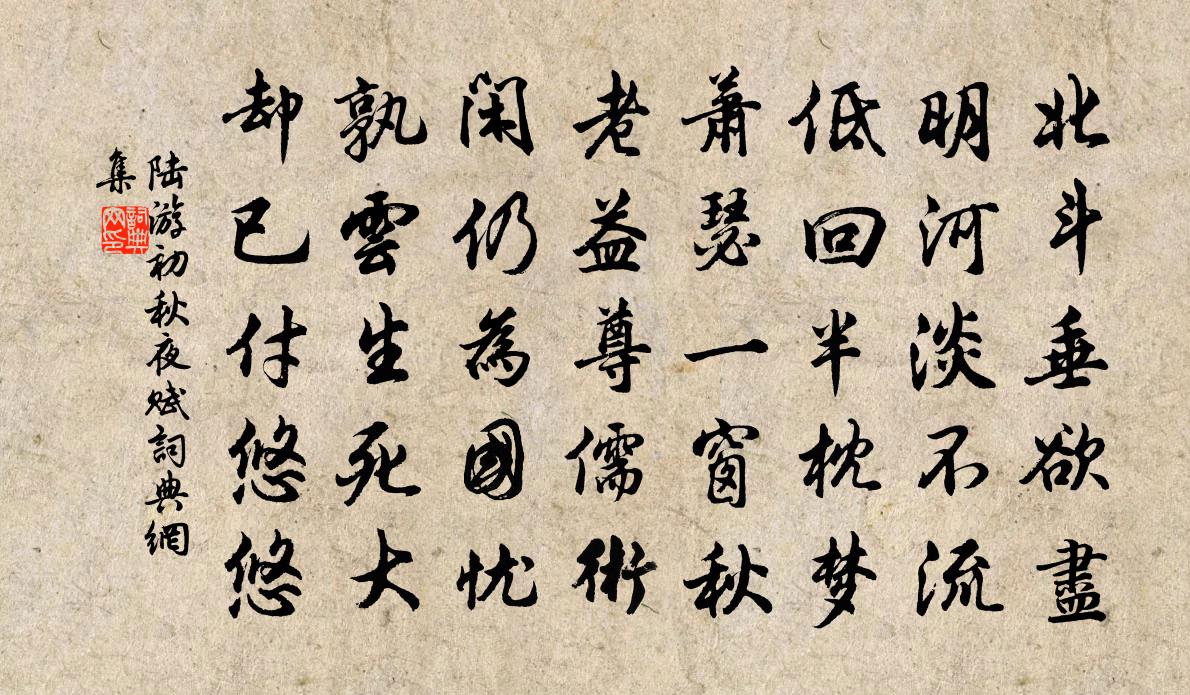 北斗垂欲盡
明河淡不流
低回半枕梦
萧瑟一窗秋
老益尊儒術
闲仍為國忧
孰雲生死大
却已付悠悠
陆游初秋夜赋詞典網
集
詞典
网印